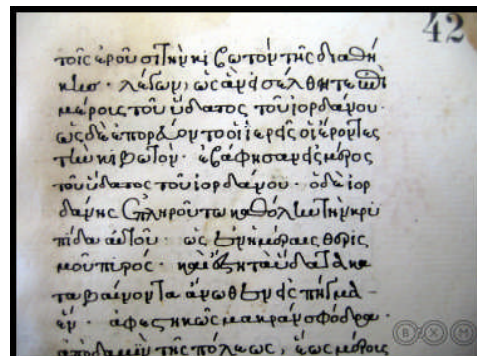 τοῖς ἐροῦσι τὴν κιβωτὸν τῆς διαθή
κης · λέγων, ὡς ἂν εἰσέλθητε ἐπὶ
μέροις τοῦ ὕδατος τοῦ ἰορδάνου ·
ὡς δὲ ἐπορεύοντο οἱ ἱερεῖς οἱ ἔροντες
τὴν κιβωτὸν · ἐβάφησαν εἰς μέρος
τοῦ ὕδατος τοῦ ἰορδάνου · ὁ δὲ ἰορ
δάνης ἐπληροῦτω καθόλην τὴν κρι
πίδα αὐτοῦ · ὡς ἐν ἡμέραις θερις
μοῦ πιρός · καὶ τα ὕδατα κα
ταβαίνοντα ἄνωθεν εἰς πῆγμα -
ἓν · ἀφεστηκὼς μακρὰν σφόδρα ·
τῆς πόλεως, ἕως μέρους
42
BXM